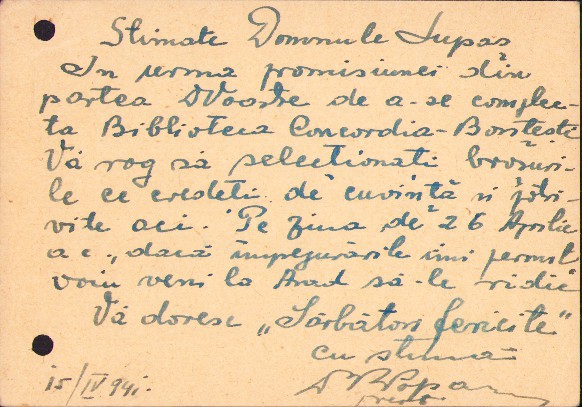 Stimate Domnule Lupaș
In urma promisiunei din
partea DVoastre de a-se complec-
ta Biblioteca Concordia-
Vă rog să selectionati broșuri-
le ce credeti de cuvintă si potri-
vite aci. Pe ziua de 26 Aprilie
a c., dacă împrejurările imi permit
voiu veni la Arad să-le ridic
Vă doresc „Sărbători fericite"
cu stimă
15/IV 941.
preot